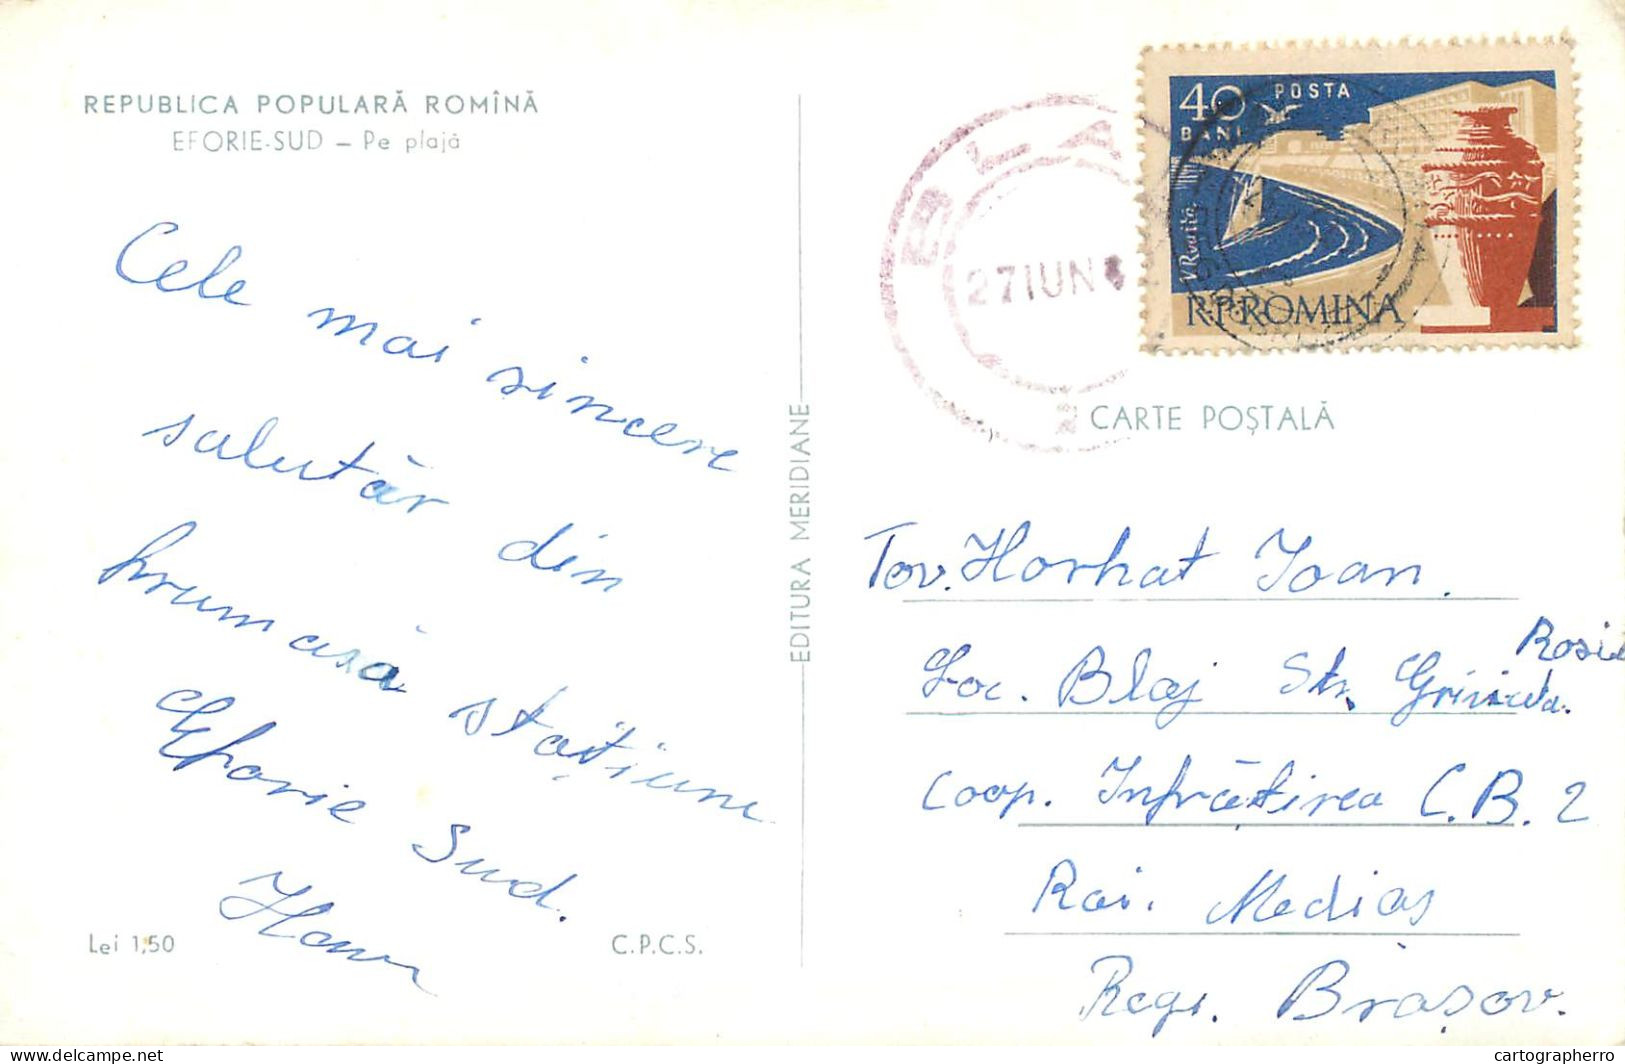 REPUBLICA POPULARĂ ROMÎNĂ
EFORIE-SUD – Pe plajă
Cele mai sincere
salutări din
frumoasă stațiune
Eforie Sud.
Lei 1,50
C.P.C.S.
EDITURA MERIDIANE
BLAJ
27 IUN 6
40 BANI
POSTA
V. Rusta
R.P. ROMINA
CARTE POȘTALĂ
Tov. Horhat Ioan.
Loc. Blaj Str. Griviţa Rosie
Coop. Infrăţirea C.B. 2
Rai. Mediaş
Reg. Braşov.
cartographerro